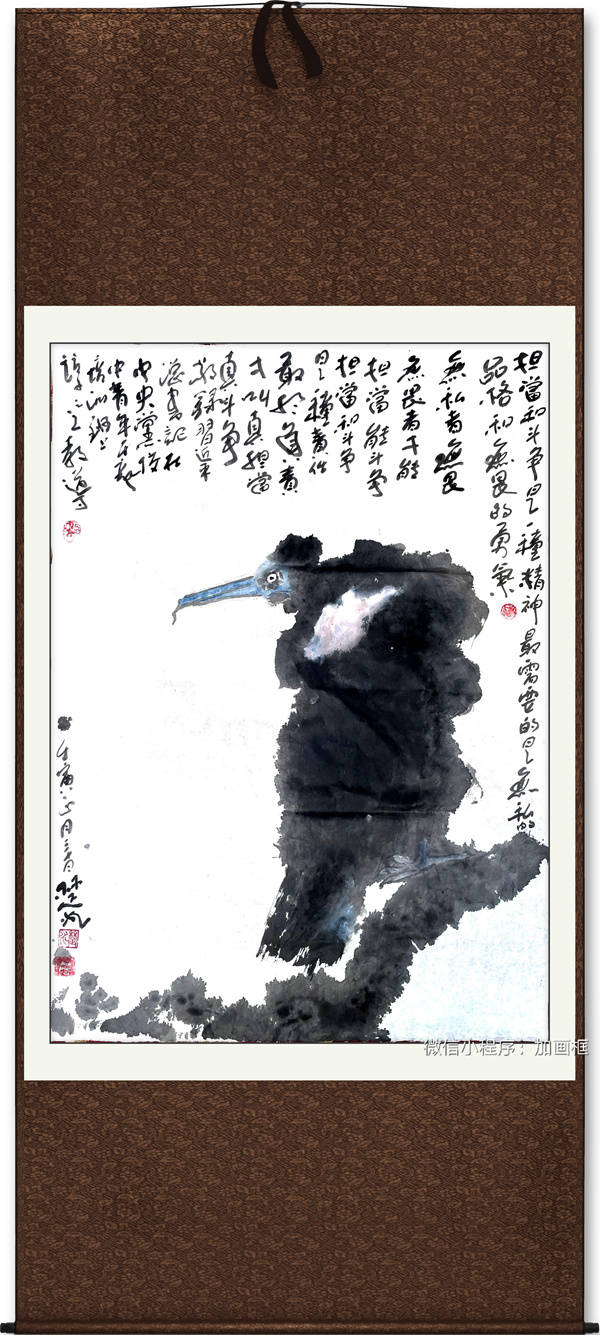 担當和斗争是一種精神 最需要的是無私的
品格和無畏的勇氣
無私者無畏
無畏者才能
担當能斗争
担當和斗争
是一種責任
敢於負責
才叫真担當
真斗争
敬錄習近平
總書記在
中央黨校
中青年干部
培訓班上
諄諄教導
壬寅 月
微信小程序：加画框